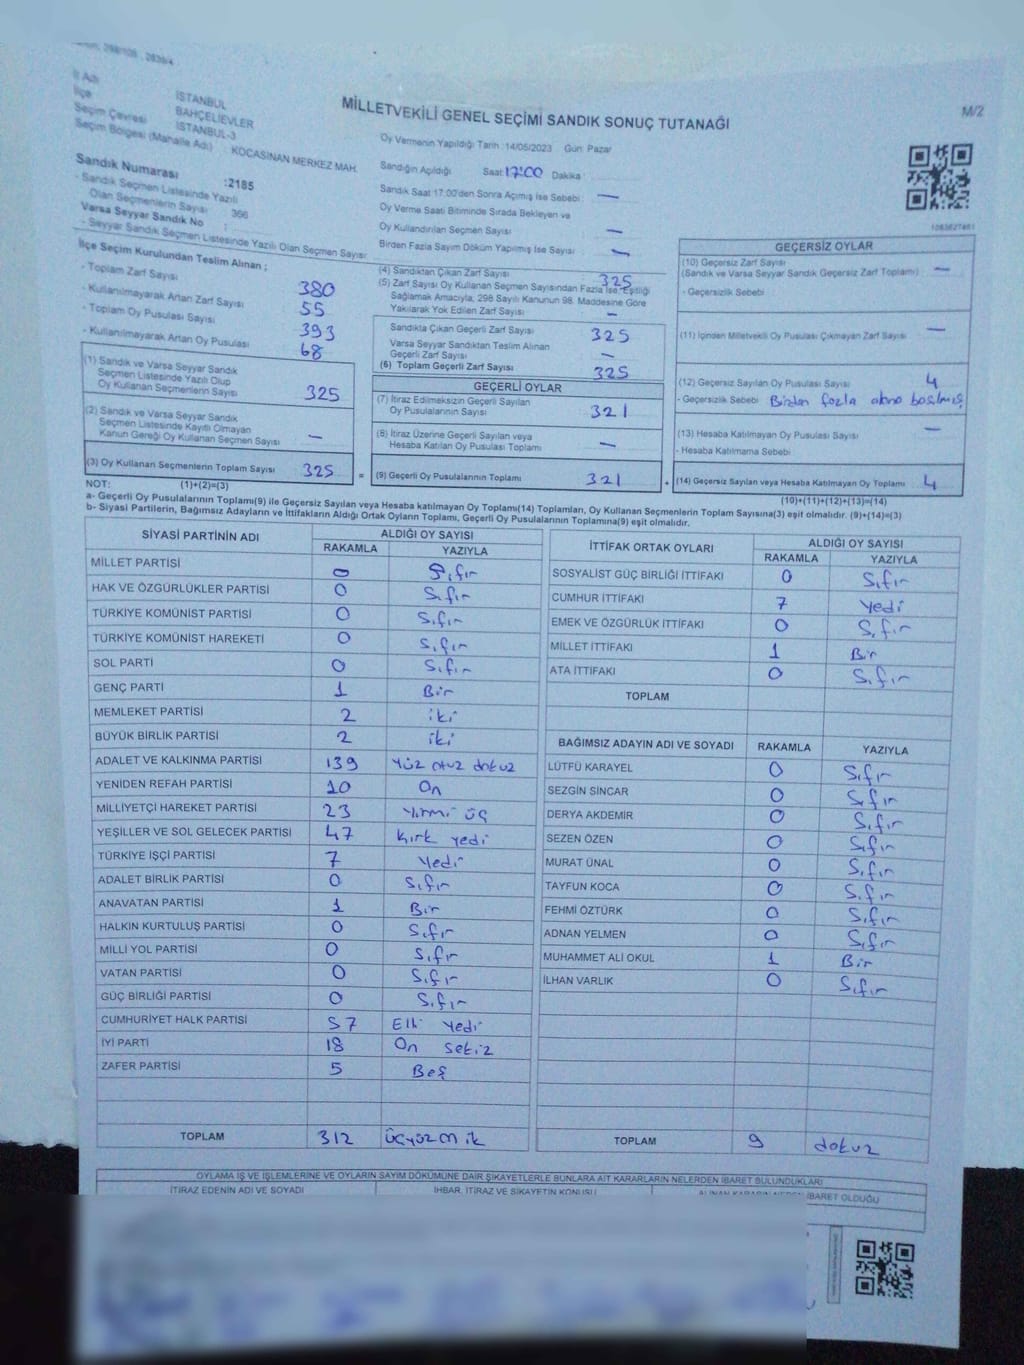 İl Adı İSTANBUL
İlçe BAHÇELİEVLER
Seçim Çevresi İSTANBUL-3
Seçim Bölgesi (Mahalle Adı) : KOCASİNAN MERKEZ MAH.
MİLLETVEKİLİ GENEL SEÇİMİ SANDIK SONUÇ TUTANAĞI
M/2
Oy Vermenin Yapıldığı Tarih : 14/05/2023 Gün: Pazar
Sandık Numarası :2185
- Sandık Seçmen Listesinde Yazılı
Olan Seçmenlerin Sayısı : 366
Varsa Seyyar Sandık No :
- Seyyar Sandık Seçmen Listesinde Yazılı Olan Seçmen Sayısı
Sandığın Açıldığı Saat: 17:00 Dakika :
Sandık Saat 17:00'den Sonra Açımış İse Sebebi : —
Oy Verme Saati Bitiminde Sırada Bekleyen ve
Oy Kullandırılan Seçmen Sayısı —
Birden Fazla Sayım Döküm Yapılmış İse Sayısı —
İlçe Seçim Kurulundan Teslim Alınan ;
- Toplam Zarf Sayısı 380
- Kullanılmayarak Artan Zarf Sayısı 55
- Toplam Oy Pusulası Sayısı 393
- Kullanılmayarak Artan Oy Pusulası 68
(1) Sandık ve Varsa Seyyar Sandık
Seçmen Listesinde Yazılı Olup
Oy Kullanan Seçmenlerin Sayısı 325
(2) Sandık ve Varsa Seyyar Sandık
Seçmen Listesinde Kayıtlı Olmayan
Kanun Gereği Oy Kullanan Seçmen Sayısı —
(3) Oy Kullanan Seçmenlerin Toplam Sayısı 325
(4) Sandıktan Çıkan Zarf Sayısı : 325
(5) Zarf Sayısı Oy Kullanan Seçmen Sayısından Fazla İse, Eşitliği
Sağlamak Amacıyla, 298 Sayılı Kanunun 98. Maddesine Göre
Yakılarak Yok Edilen Zarf Sayısı —
Sandıkta Çıkan Geçerli Zarf Sayısı 325
Varsa Seyyar Sandıktan Teslim Alınan
Geçerli Zarf Sayısı —
(6) Toplam Geçerli Zarf Sayısı 325
GEÇERLİ OYLAR
(7) İtiraz Edilmeksizin Geçerli Sayılan
Oy Pusulalarının Sayısı 321
(8) İtiraz Üzerine Geçerli Sayılan veya
Hesaba Katılan Oy Pusulası Toplamı —
= (9) Geçerli Oy Pusulalarının Toplamı 321
1083627481
GEÇERSİZ OYLAR
(10) Geçersiz Zarf Sayısı
(Sandık ve Varsa Seyyar Sandık Geçersiz Zarf Toplamı) —
- Geçersizlik Sebebi
(11) İçinden Milletvekili Oy Pusulası Çıkmayan Zarf Sayısı —
(12) Geçersiz Sayılan Oy Pusulası Sayısı 4
- Geçersizlik Sebebi Birden fazla alana basılmış
(13) Hesaba Katılmayan Oy Pusulası Sayısı —
- Hesaba Katılmama Sebebi
+ (14) Geçersiz Sayılan veya Hesaba Katılmayan Oy Toplamı 4
NOT: (1)+(2)=(3) (10)+(11)+(12)+(13)=(14)
a- Geçerli Oy Pusulalarının Toplamı(9) ile Geçersiz Sayılan veya Hesaba katılmayan Oy Toplamı(14) Toplamları, Oy Kullanan Seçmenlerin Toplam Sayısına(3) eşit olmalıdır. (9)+(14)=(3)
b- Siyasi Partilerin, Bağımsız Adayların ve İttifakların Aldığı Ortak Oyların Toplamı, Geçerli Oy Pusulalarının Toplamına(9) eşit olmalıdır.
SİYASİ PARTİNİN ADI ALDIĞI OY SAYISI
RAKAMLA YAZIYLA
MİLLET PARTİSİ 0 Sıfır
HAK VE ÖZGÜRLÜKLER PARTİSİ 0 Sıfır
TÜRKİYE KOMÜNİST PARTİSİ 0 Sıfır
TÜRKİYE KOMÜNİST HAREKETİ 0 Sıfır
SOL PARTİ 0 Sıfır
GENÇ PARTİ 1 Bir
MEMLEKET PARTİSİ 2 iki
BÜYÜK BİRLİK PARTİSİ 2 iki
ADALET VE KALKINMA PARTİSİ 139 Yüz otuz dokuz
YENİDEN REFAH PARTİSİ 10 On
MİLLİYETÇİ HAREKET PARTİSİ 23 Yirmi üç
YEŞİLLER VE SOL GELECEK PARTİSİ 47 Kırk yedi
TÜRKİYE İŞÇİ PARTİSİ 7 Yedi
ADALET BİRLİK PARTİSİ 0 Sıfır
ANAVATAN PARTİSİ 1 Bir
HALKIN KURTULUŞ PARTİSİ 0 Sıfır
MİLLİ YOL PARTİSİ 0 Sıfır
VATAN PARTİSİ 0 Sıfır
GÜÇ BİRLİĞİ PARTİSİ 0 Sıfır
CUMHURİYET HALK PARTİSİ 57 Elli Yedi
İYİ PARTİ 18 On Sekiz
ZAFER PARTİSİ 5 Beş
TOPLAM 312 üçyüzon iki
İTTİFAK ORTAK OYLARI ALDIĞI OY SAYISI
RAKAMLA YAZIYLA
SOSYALİST GÜÇ BİRLİĞİ İTTİFAKI 0 Sıfır
CUMHUR İTTİFAKI 7 Yedi
EMEK VE ÖZGÜRLÜK İTTİFAKI 0 Sıfır
MİLLET İTTİFAKI 1 Bir
ATA İTTİFAKI 0 Sıfır
TOPLAM
BAĞIMSIZ ADAYIN ADI VE SOYADI RAKAMLA YAZIYLA
LÜTFÜ KARAYEL 0 Sıfır
SEZGİN SİNCAR 0 Sıfır
DERYA AKDEMİR 0 Sıfır
SEZEN ÖZEN 0 Sıfır
MURAT ÜNAL 0 Sıfır
TAYFUN KOCA 0 Sıfır
FEHMİ ÖZTÜRK 0 Sıfır
ADNAN YELMEN 0 Sıfır
MUHAMMET ALİ OKUL 1 Bir
İLHAN VARLIK 0 Sıfır
TOPLAM 9 dokuz
OYLAMA İŞ VE İŞLEMLERİNE VE OYLARIN SAYIM DÖKÜMÜNE DAİR ŞİKAYETLERLE BUNLARA AİT KARARLARIN NELERDEN İBARET BULUNDUKLARI
İTİRAZ EDENİN ADI VE SOYADI İHBAR, İTİRAZ VE ŞİKAYETİN KONUSU İBARET OLDUĞU